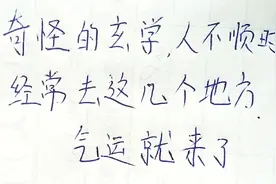 奇怪的玄学,人不顺时
经常去这几个地方.
气运就来了